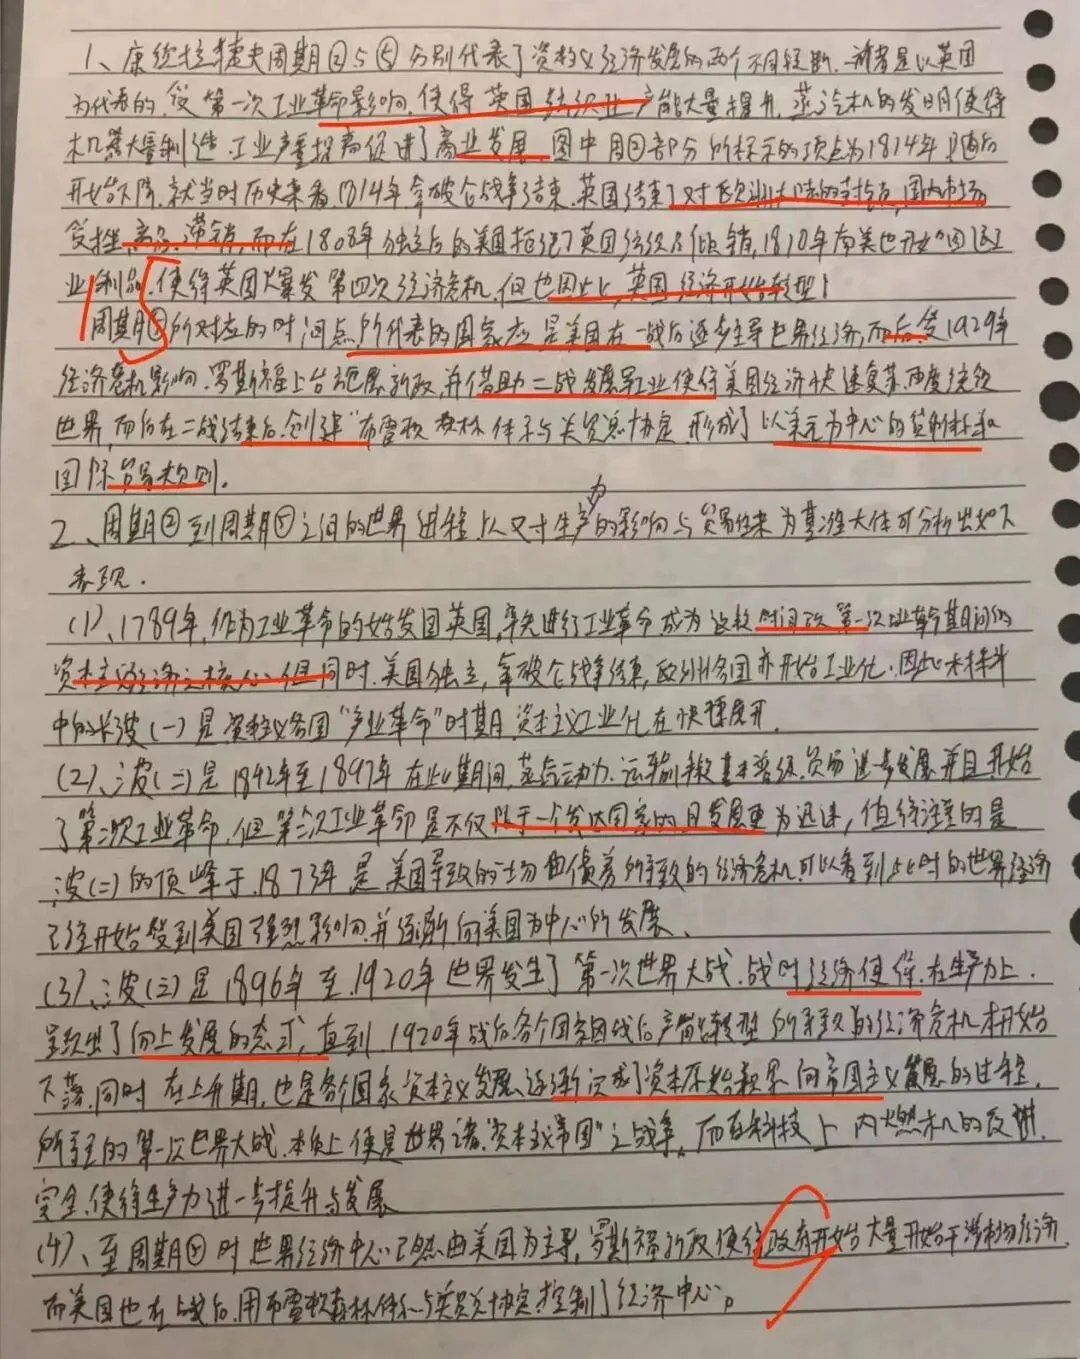 1、康德拉捷夫周期②与⑤分别代表了资本主义经济发展的两个不同轻断.前者是以英国
为代表的.受第一次工业革命影响.使得英国纺织业产能大量提升.蒸汽机的发明使得
机器大量制造.工业产量提高促进了商业发展.图中周②部分所标示的顶点为1814年.随后
开始下降.就当时历史来看1814年拿破仑战争结束.英国结束了对欧洲大陆的封锁.国内市场
受挫,商品滞销,而在1808年独立后的美国拒绝了英国纺织品倾销,1810年南美也开始
业制品,使得英国爆发第四次经济危机,但也因此,英国经济开始转型!
周期⑤所对应的时间点所代表的国家应是美国在一战后逐步主导世界经济,而后受1929年
经济危机影响.罗斯福上台施展新政,并借助二战发展军工业使得美国经济快速复苏.再度统领
世界,而后在二战结束后,创建"布雷顿森林体系与关贸总协定.形成了以美元为中心的货币体系和
国际贸易规则。
2、周期②到周期⑤之间的世界进程.以又对生产力的影响与贸易往来为基准大体可分析出如下
表现.
(1)、1789年,作为工业革命的始发国英国,率先进行工业革命成为这段时间段第一次工业革命期间的
资本主义经济之核心.但同时.美国独立,拿破仑战争结束,欧洲各国亦开始工业化.因此
中的长波(一)是资本主义各国"产业革命"时期.资本主义工业化在快速展开.
(2)、波(二)是1842年至1897年在此期间,蒸气动力.运输 基本普级.贸易进一步发展.并且开始
了第二次工业革命,但第二次工业革命是不仅限于一个发达国家的且发展更为迅速,值得注意的是
波(二)的顶峰于1873年是美国导致的 由债券所导致的经济危机.可以看到此时的世界经济
已经开始受到美国强烈影响.并逐渐向美国为中心所发展、
(3)、波(三)是1896年至1920年世界发生了第一次世界大战.战时经济使得.在生产力上.
呈现出了向上发展的态式,直到1920年战后各个国家因战后产能转型所导致的经济危机才开始
下落.同时在上升期,也是各个国家资本主义发展逐渐完成了资本原始积累向帝国主义发展的过程,
所至的第一次世界大战.本质上便是世界诸"资本主义帝国"之战争,而在科技上内燃机的改进.
完全.使得生产力进一步提升与发展
(4)、至周期⑤时世界经济中心已然由美国为主导,罗斯福新政使得政府开始大量开始干涉市场经济.
而美国也在战后.用布雷顿森林体系与关贸协定.控制了经济中心。